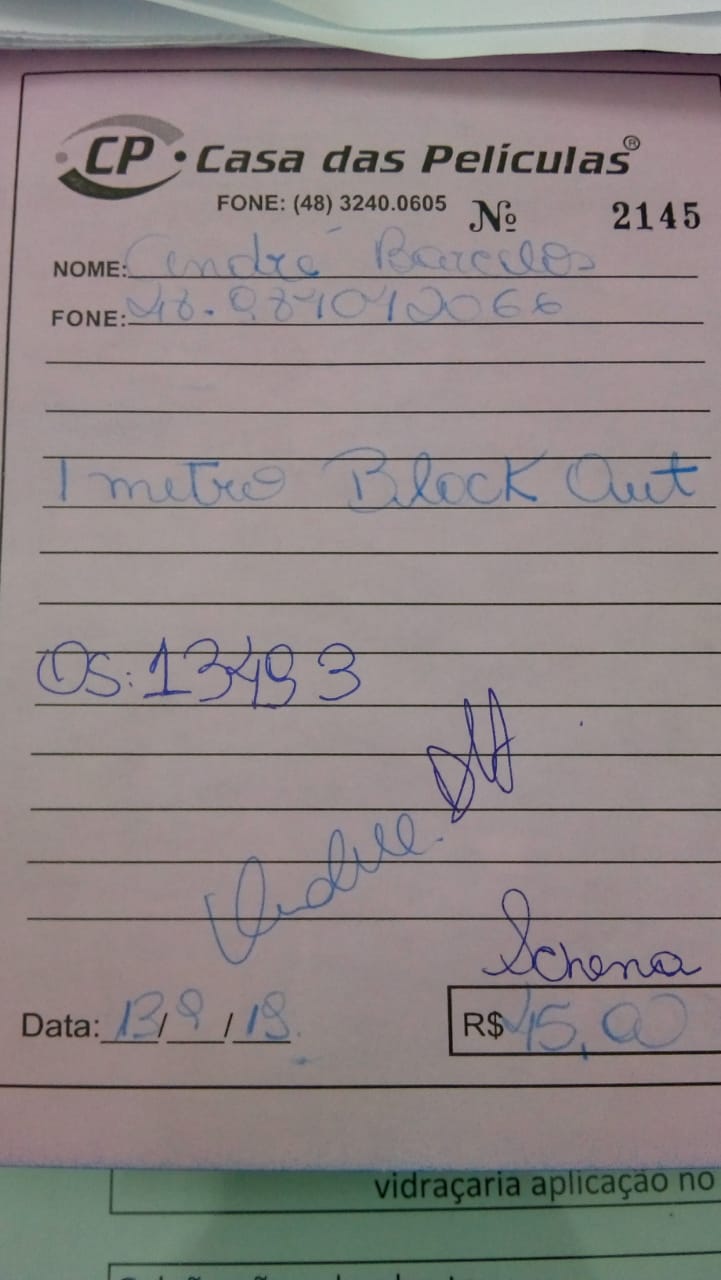 CP • Casa das Películas®
FONE: (48) 3240.0605 Nº 2145
NOME: André Barcelos
FONE: 48.984042066
1 metro Block Out
OS: 13493
Schena
Data: 13/9/19 R$ 45,00
vidraçaria aplicação no